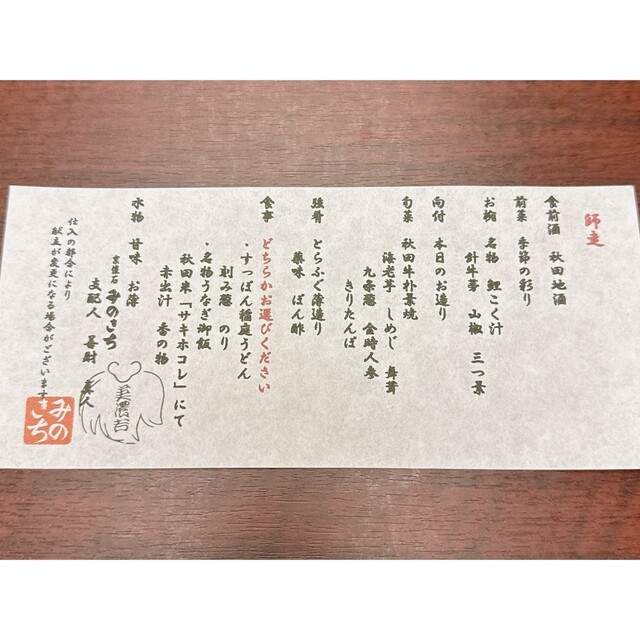 師走
食前酒 秋田地酒
前菜 季節の彩り
お椀 名物 鯉こく汁
針牛蒡 山椒 三つ葉
向付 本日のお造り
旬菜 秋田牛朴葉焼
海老芋 しめじ 舞茸
九条葱 金時人参
きりたんぽ
強肴 とらふぐ薄造り
薬味 ぽん酢
食事 どちらかお選びください
・すっぽん稲庭うどん
刻み葱 のり
・名物うなぎ御飯
秋田米「サキホコレ」にて
赤出汁 香の物
水物 甘味 お薄
京懐石 みのきち
支配人 喜財 真人
美濃吉
仕入の都合により
献立が変更になる場合がございます
みのきち